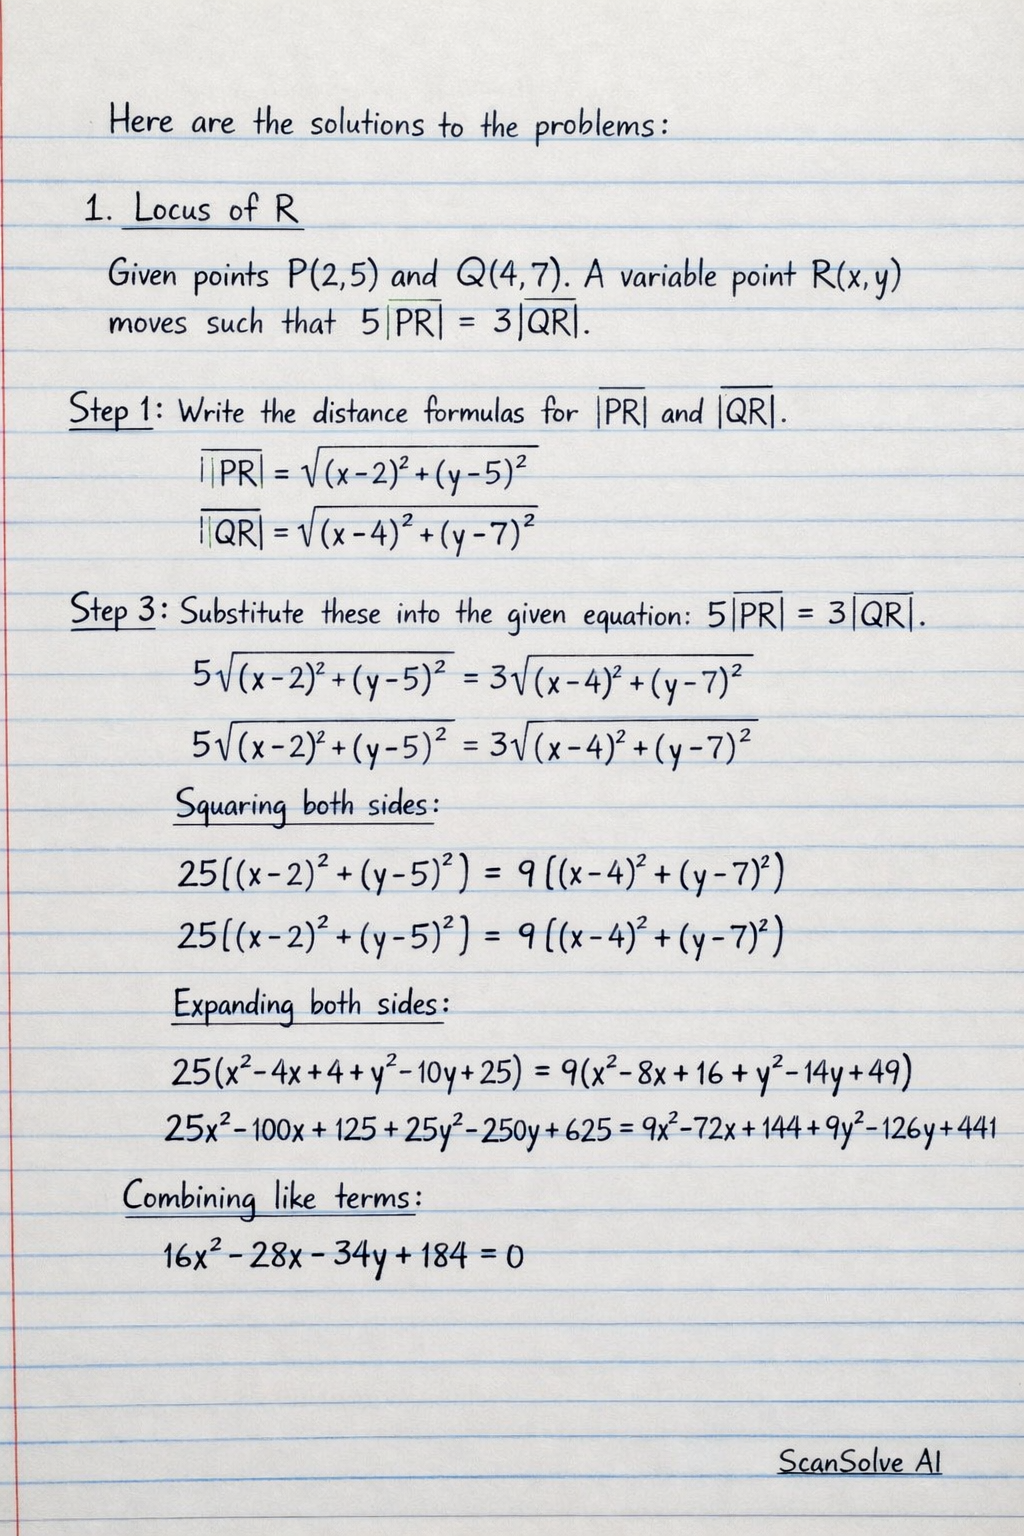 Here are the solutions to the problems:
1. Locus of R
Given points P(2,5) and Q(4,7). A variable point R(x,y)
moves such that 5|PR| = 3|QR|.
Step 1: Write the distance formulas for |PR| and |QR|.
||PR| = √(x-2)²+(y-5)²
||QR| = √(x-4)²+(y-7)²
Step 3: Substitute these into the given equation: 5|PR| = 3|QR|.
5√(x-2)²+(y-5)² = 3√(x-4)²+(y-7)²
5√(x-2)²+(y-5)² = 3√(x-4)²+(y-7)²
Squaring both sides:
25((x-2)²+(y-5)²) = 9((x-4)²+(y-7)²)
25((x-2)²+(y-5)²) = 9((x-4)²+(y-7)²)
Expanding both sides:
25(x²-4x+4+y²-10y+25) = 9(x²-8x+16+y²-14y+49)
25x²-100x+125+25y²-250y+625=9x²-72x+144+9y²-126y+441
Combining like terms:
16x²-28x-34y+184=0
ScanSolve AI